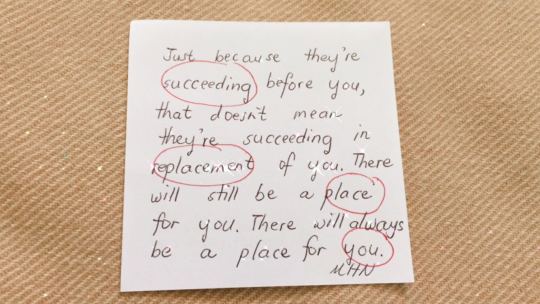 Just because they're
succeeding before you,
that doesn't mean
they're succeeding in
replacement of you. There
will still be a place
for you. There will always
be a place for you.
MHN